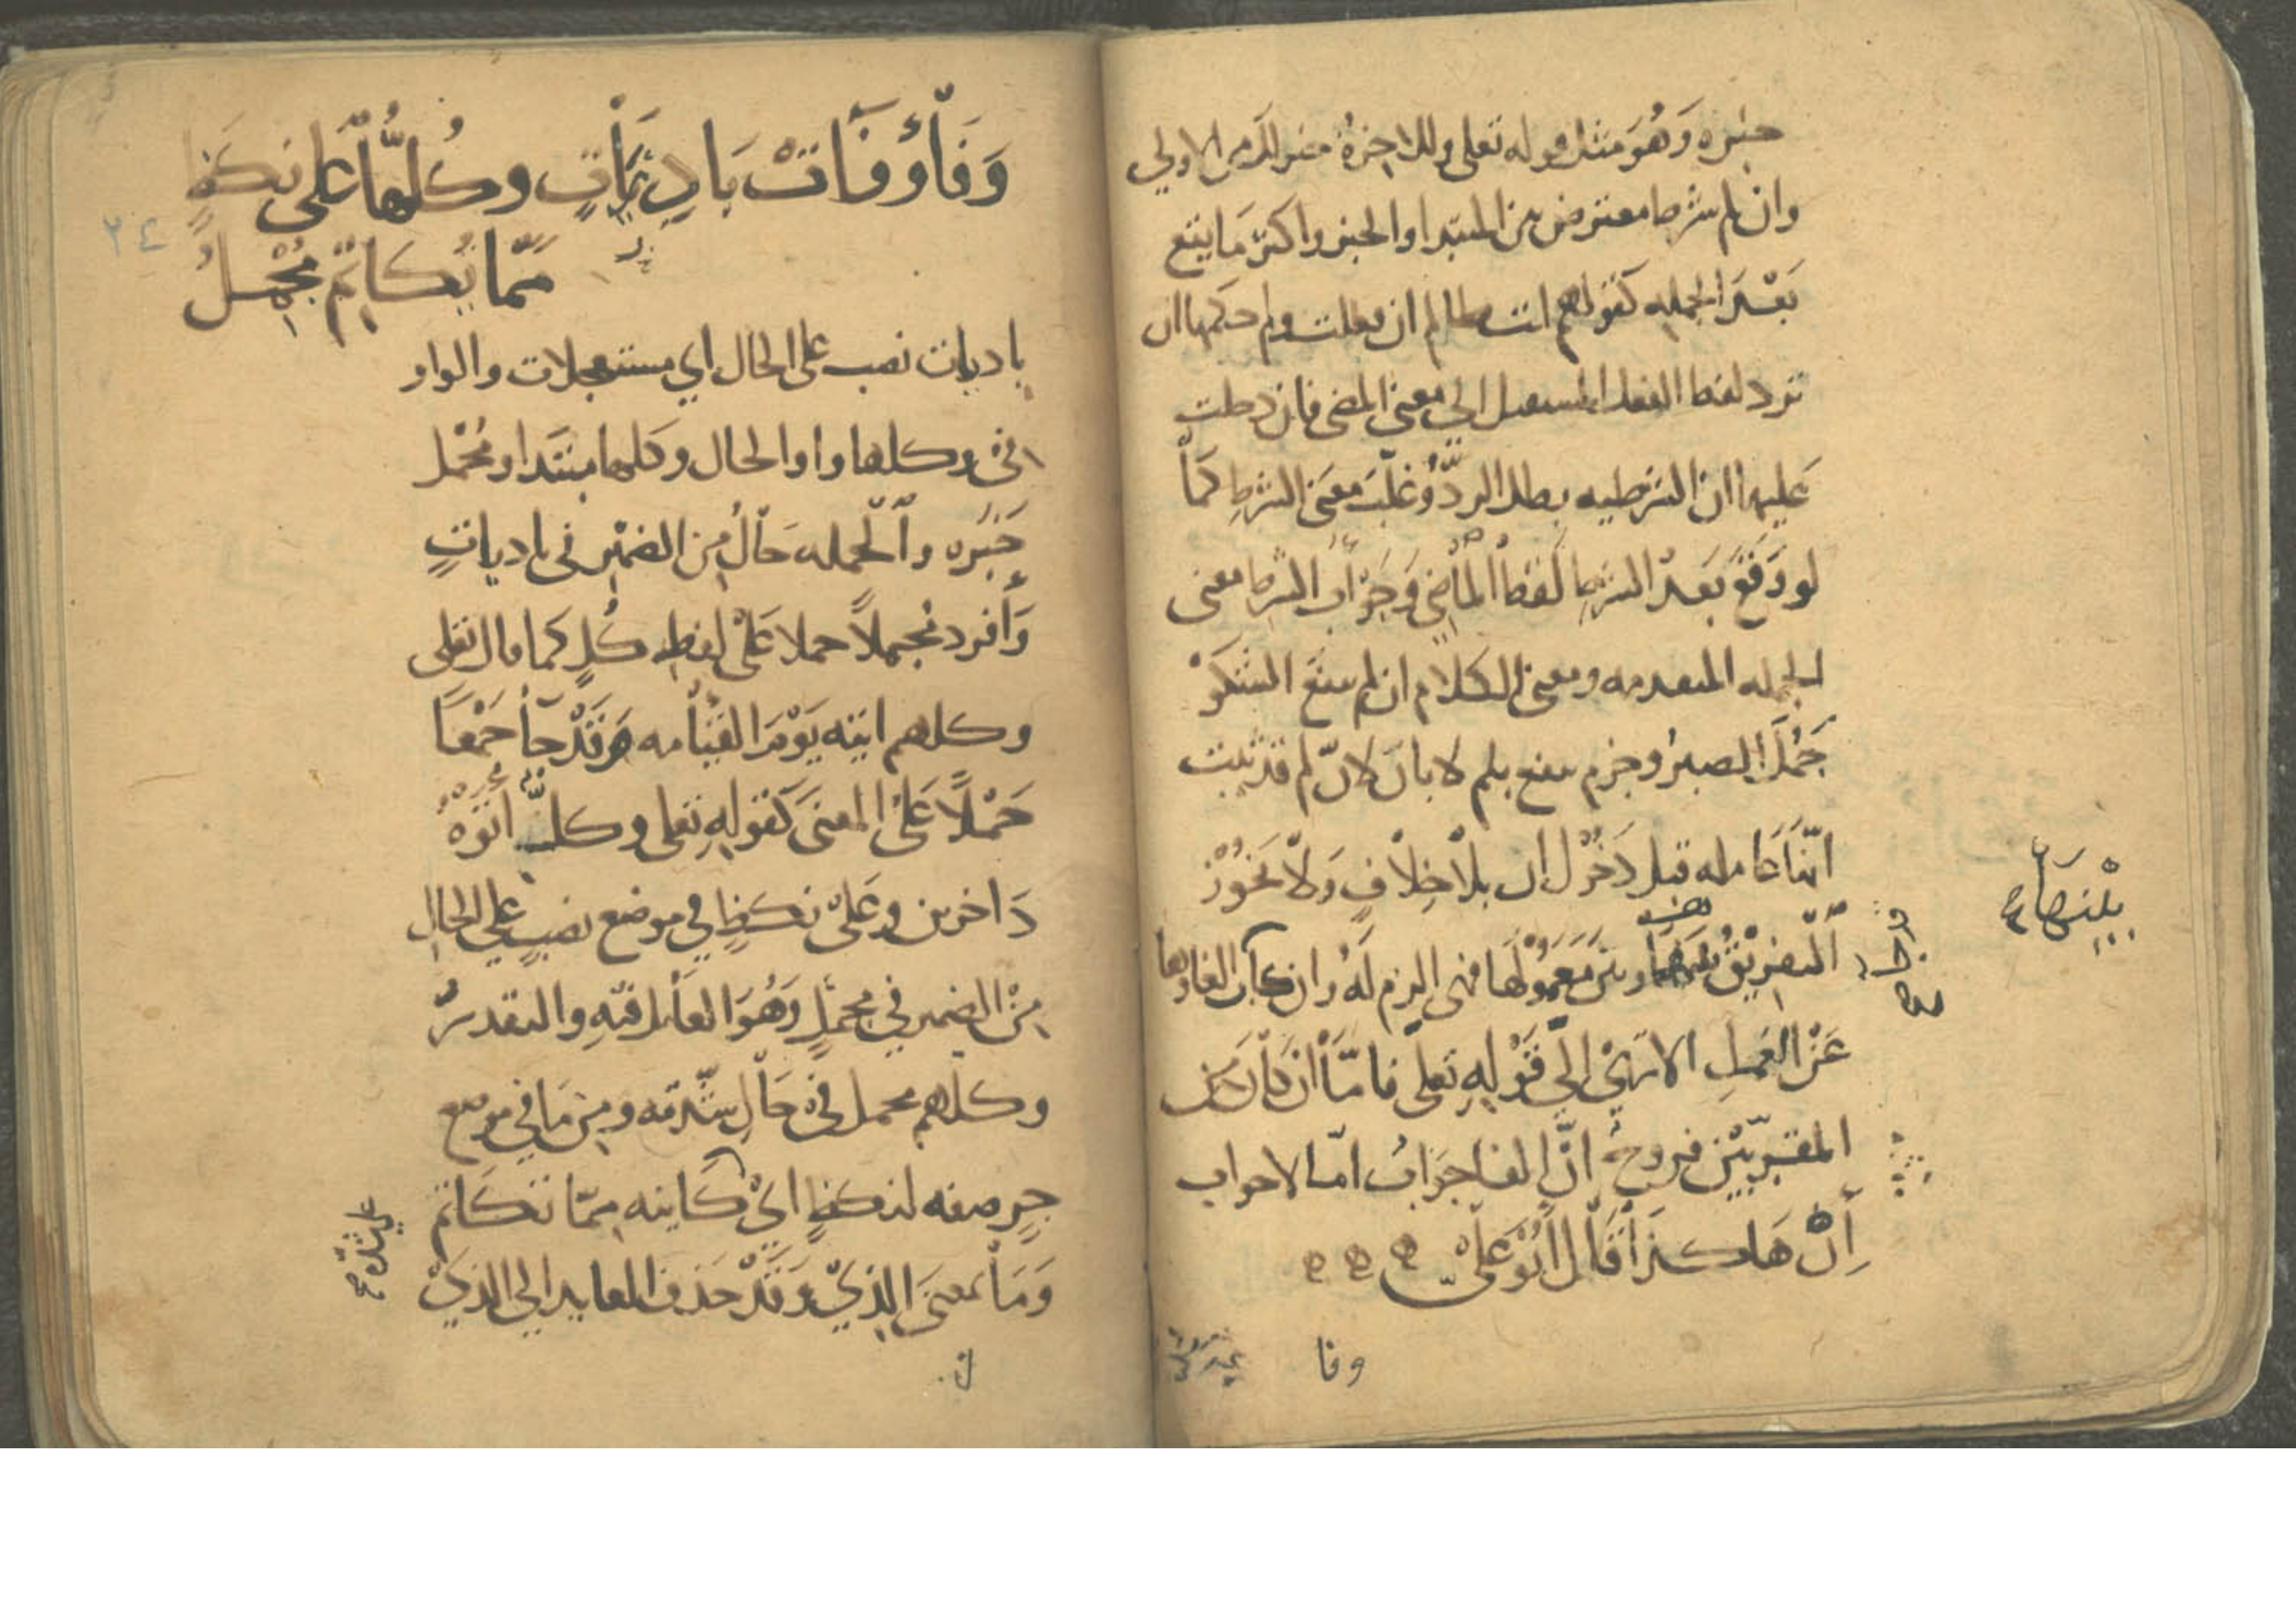 خبره وهو مثل قوله تعلى وللاخرة خير لك من الاولى
وان لم شرط معترض بين المبتدا والخبر واكثر ما يقع
بعد الجمله كقولهم انت ظالم ان فعلت ولم حكمها ان
ترد لفظ الفعل المستقبل الى معنى المضى فان دخلت
عليها ان الشرطيه بطل الرد وغلب معنى الشرط كما
لو وقع بعد الشرط لفظ الماضي وجواب الشرط معنى
الجمله المتقدمه ومعنى الكلام ان لم ينفع الشكو
جمل الصبر وجزم ينفع بلم لا بان لان لم قد ثبت
انها عامله قبل دخول ان بلا خلاف ولا يجوز
التفريق بينها وبين معمولها فهى الزم له وان كان الغاوها
عن العمل الا ترى الى قوله تعلى فاما ان كان من
المقربين فروح ان الفا جواب اما لا جواب
إن هاكذا قال ابو على
بينها
وفا
وفاؤ وفآات باديات وكلها على نكظ
٢٤
مما يكاتم مجمل
باديات نصب على الحال اي مستعجلات والواو
في وكلها واو الحال وكلها مبتدا ومجمل
خبره والجمله حال من الضمير في باديات
وأفرد مجملا حملا على لفظ كل كما قال تعلى
وكلهم اتيه يوم القيامه وقد جا جمعا
حملا على المعنى كقوله تعلى وكل اتوه
داخرين وعلى نكظ في موضع نصب على الحال
من الضمير في مجمل وهو العامل فيه والتقدير
وكلهم مجمل في حال شدته ومن ما في موضع
جر صفه لنكظ اي كاينه مما تكاتم
وما بمعنى الذي وقد حذف العايد الى الذي